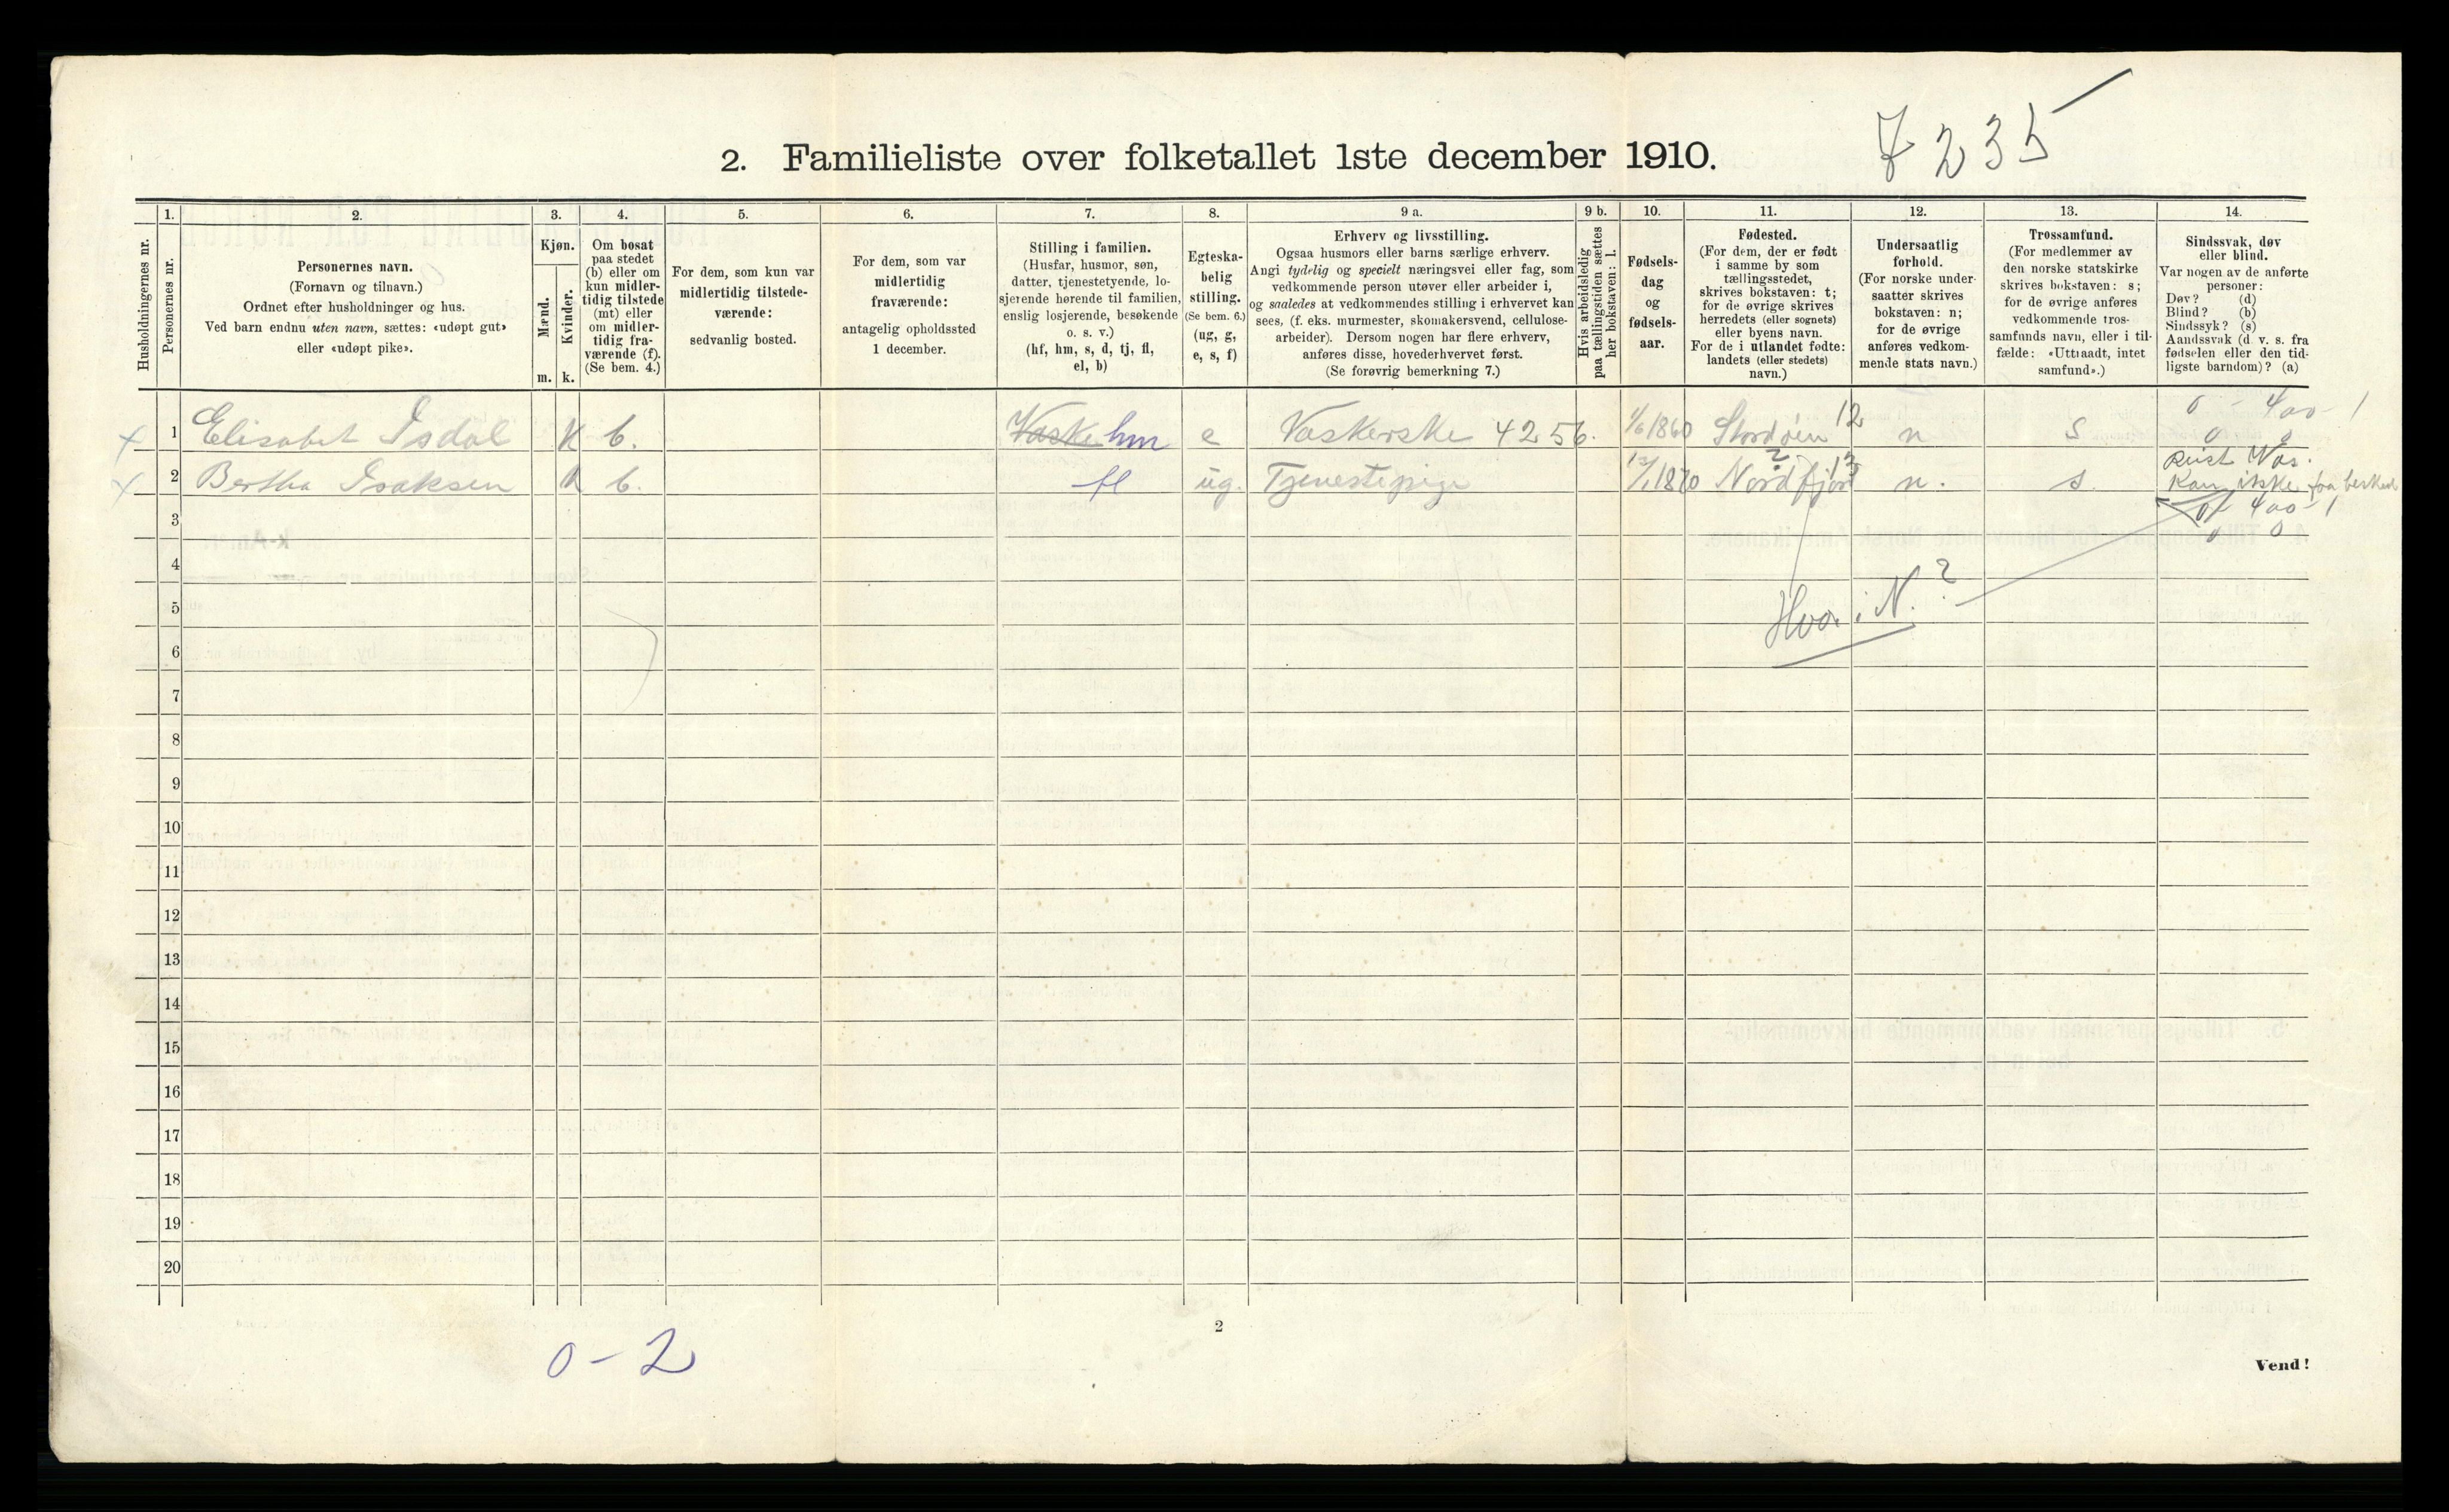 7235
2. Familieliste over folketallet 1ste december 1910.
Husholdningernes nr.
1.
Personernes nr.
2.
Personernes navn.
(Fornavn og tilnavn.)
Ordnet efter husholdninger og hus.
Ved barn endnu uten navn, sættes: «udøpt gut»
eller «udøpt pike».
3.
Kjøn.
Mænd.
Kvinder.
m. k.
4.
Om bosat
paa stedet
(b) eller om
kun midler-
tidig tilstede
(mt) eller
om midler-
tidig fra-
værende (f).
(Se bem. 4.)
5.
For dem, som kun var
midlertidig tilstede-
værende:
sedvanlig bosted.
6.
For dem, som var
midlertidig
fraværende:
antagelig opholdssted
1 december.
7.
Stilling i familien.
(Husfar, husmor, søn,
datter, tjenestetyende, lo-
sjerende hørende til familien,
enslig losjerende, besøkende
o. s. v.)
(hf, hm, s, d, tj, fl,
el, b)
8.
Egteska-
belig
stilling.
(Se bem. 6.)
(ug, g,
e, s, f)
9 a.
Erhverv og livsstilling.
Ogsaa husmors eller barns særlige erhverv.
Angi tydelig og specielt næringsvei eller fag, som
vedkommende person utøver eller arbeider i,
og saaledes at vedkommendes stilling i erhvervet kan
sees, (f. eks. murmester, skomakersvend, cellulose-
arbeider). Dersom nogen har flere erhverv,
anføres disse, hovederhvervet først.
(Se forøvrig bemerkning 7.)
9 b.
Hvis arbeidsledig
paa tællingstiden sættes
her bokstaven: l.
10.
Fødsels-
dag
og
fødsels-
aar.
11.
Fødested.
(For dem, der er født
i samme by som
tællingsstedet,
skrives bokstaven: t;
for de øvrige skrives
herredets (eller sognets)
eller byens navn.
For de i utlandet fødte:
landets (eller stedets)
navn.)
12.
Undersaatlig
forhold.
(For norske under-
saatter skrives
bokstaven: n;
for de øvrige
anføres vedkom-
mende stats navn.)
13.
Trossamfund.
(For medlemmer av
den norske statskirke
skrives bokstaven: s;
for de øvrige anføres
vedkommende tros-
samfunds navn, eller i til-
fælde: «Uttraadt, intet
samfund».)
14.
Sindssvak, døv
eller blind.
Var nogen av de anførte
personer:
Døv? (d)
Blind? (b)
Sindssyk? (s)
Aandssvak (d. v. s. fra
fødselen eller den tid-
ligste barndom)? (a)
0 - 400 - 1
x 1 Elisabet Isdal K b. Vaske hm e Vaskerske 4256. 1/6 1860 Stordøen 12 n S 0 0
x 2 Bertha Isaksen K b. fl ug. Tjenestepige 13/1 1870 Nordfjord ? 13 n. s. Kan ikke faa besked
0 400-1
0 0
3
4
Hvor i N. ?
5
6
7
8
9
10
11
12
13
14
15
16
17
18
19
20
2
0 - 2
Vend!